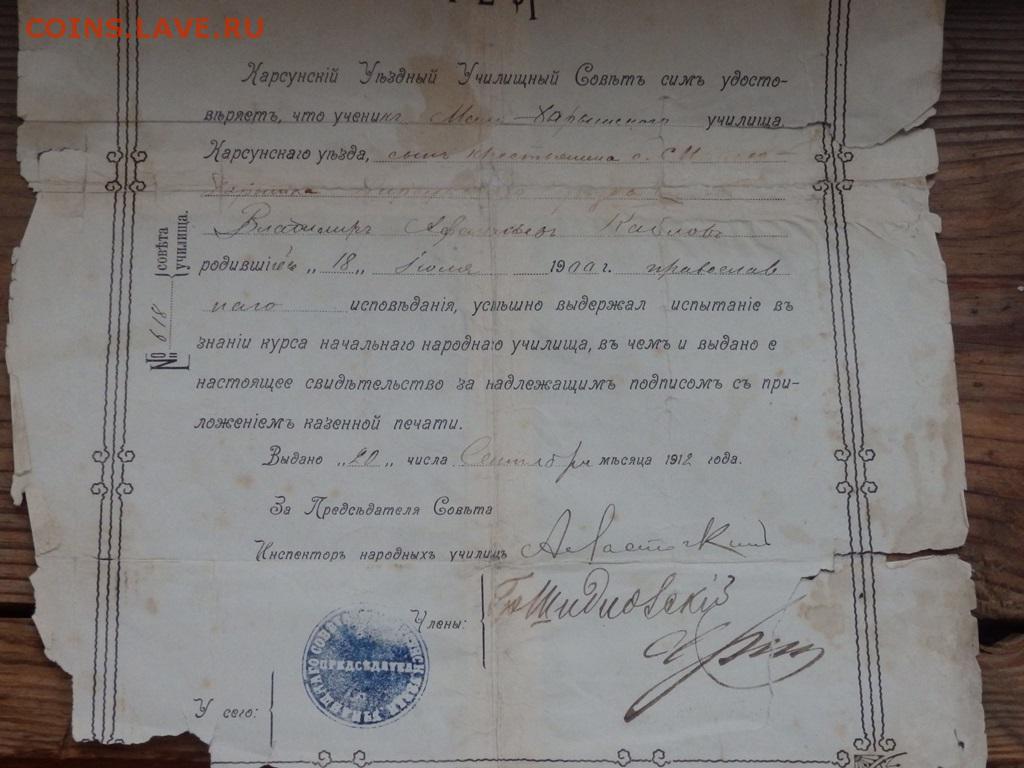 COINS.LAVE.RU
Карсунскій Уѣздный Училищный Совѣтъ симъ удосто-
вѣряетъ, что ученикъ Мало-Харышскаго училища
Карсунскаго уѣзда, сынъ крестьянина с.
Владиміръ
родившійся „18„ Іюля 1900 г. православ
наго исповѣданія, успѣшно выдержал испытаніе въ
знаніи курса начальнаго народнаго училища, въ чемъ и выдано е
настоящее свидѣтельство за надлежащимъ подписомъ съ при-
ложеніемъ казенной печати.
Выдано „20„ числа Сентября мѣсяца 1912 года.
За Предсѣдателя Совѣта
Инспекторъ народныхъ училищъ
Члены:
У сего:
№ 618 совѣта
училища.
ПРЕДСѢДАТЕЛЬ